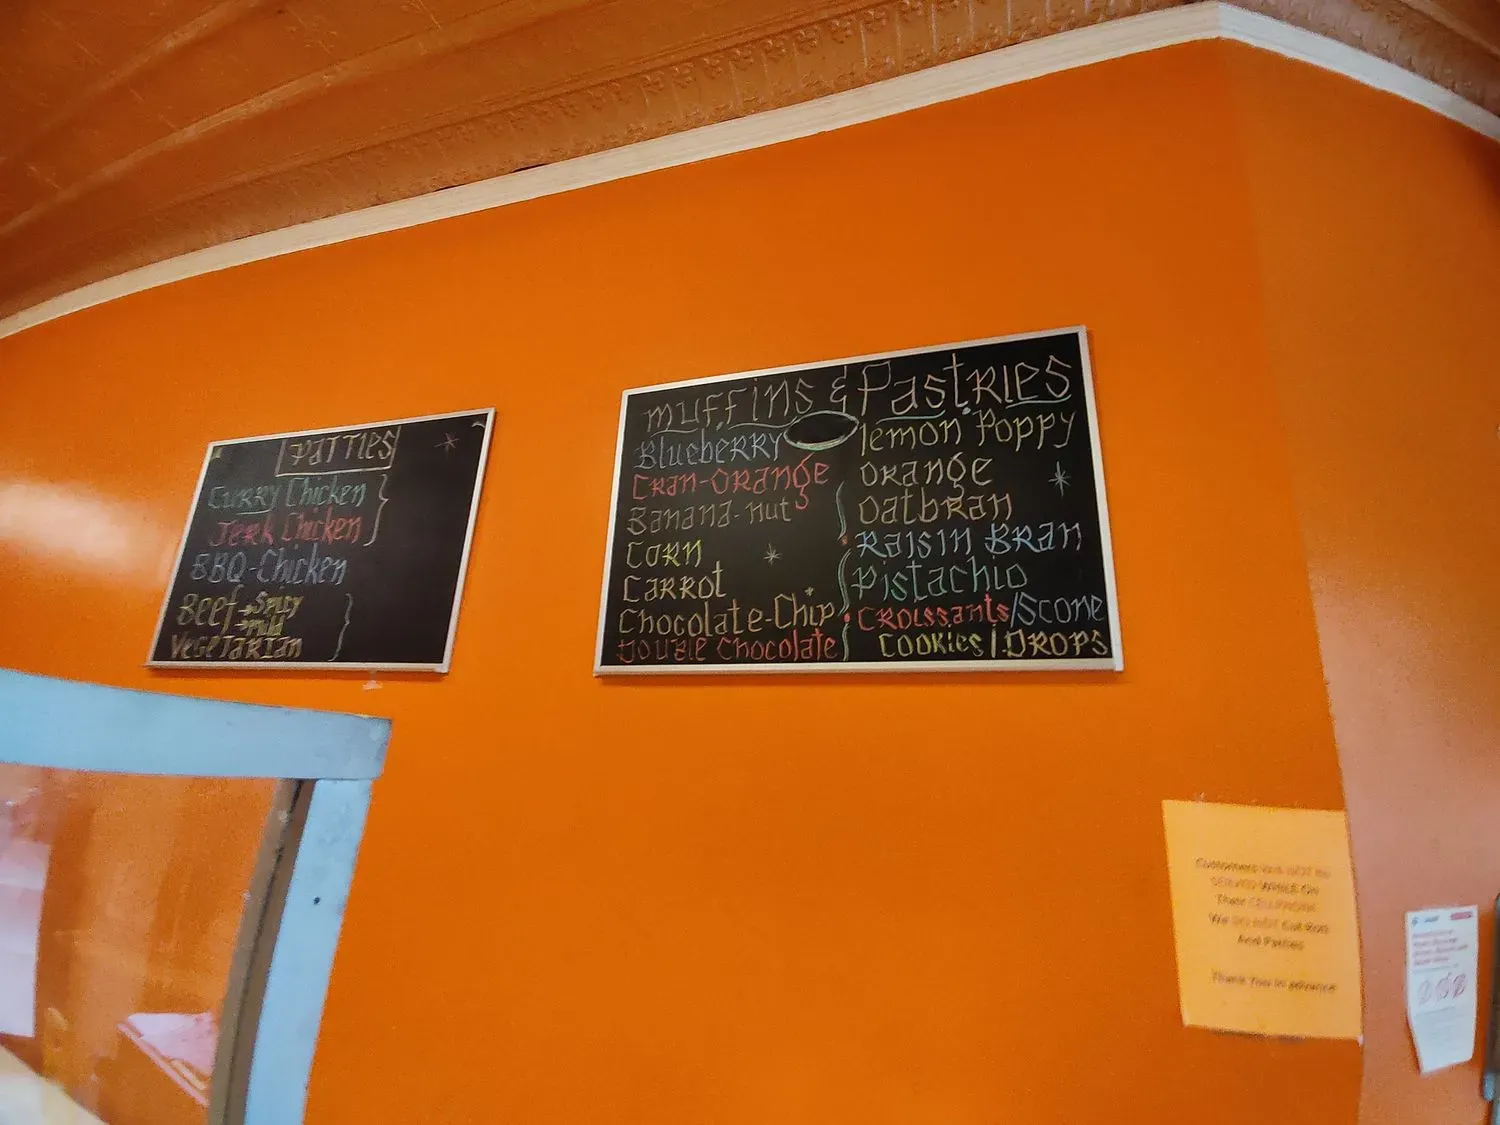 Patties
Curry Chicken
Jerk Chicken
BBQ-Chicken
Beef → Spicy
→ mild
Vegetarian
Muffins & Pastries
Blueberry
Cran-Orange
Banana-nut
Corn
Carrot
Chocolate-Chip
Double Chocolate
lemon Poppy
Orange
Oatbran
Raisin Bran
Pistachio
Croissants/Scone
Cookies/Drops
Customers NOT
SERVED WHILE On
Their CELLPHONE
We DO NOT Cut
And Patties
Thank You in advance